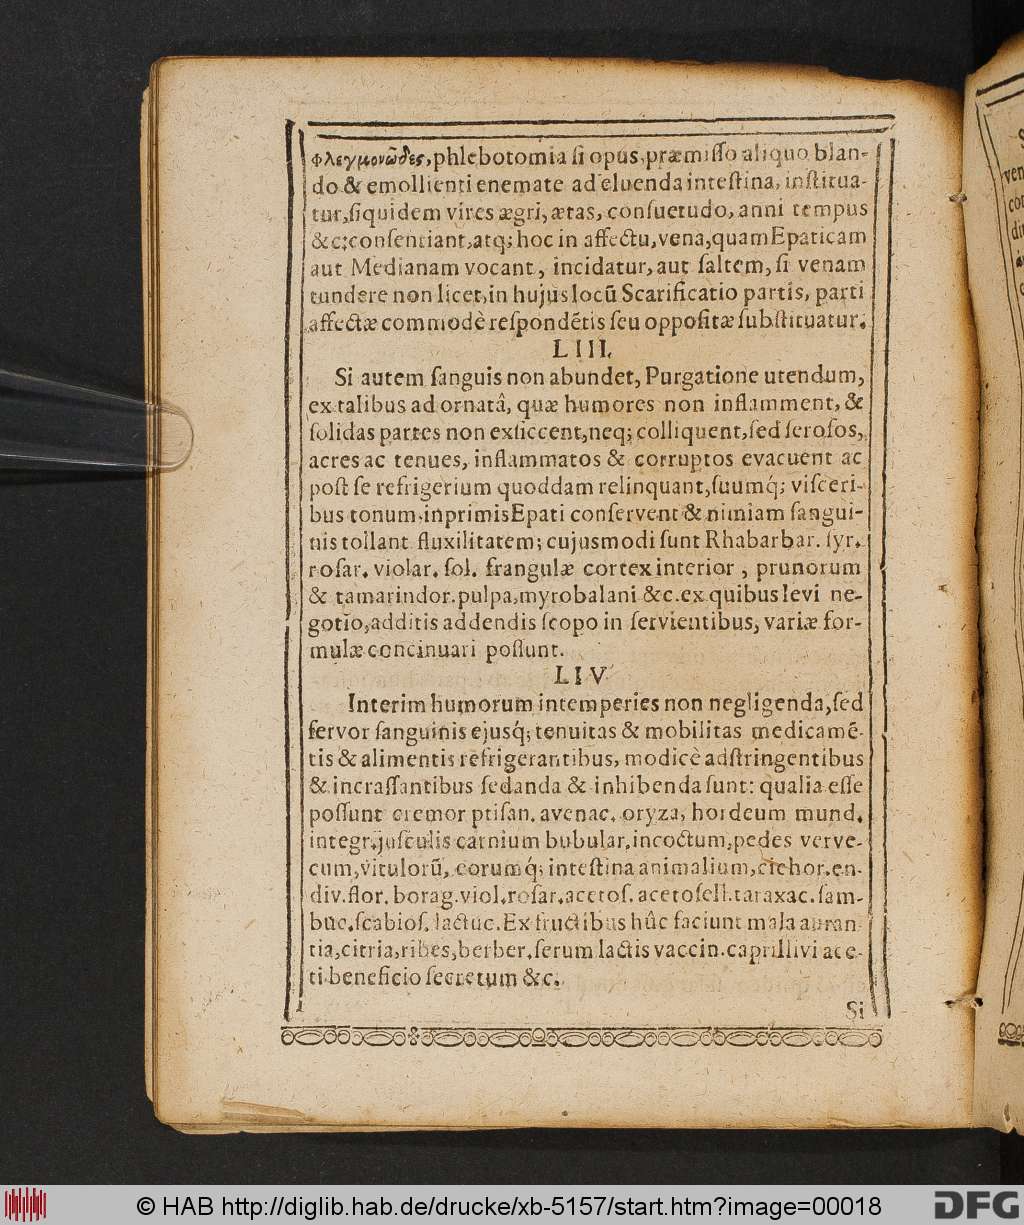 φλεγμονῶδες, phlebotomia ſi opus, præmiſſo aliquo blan-
do & emollienti enemate ad eluenda inteſtina, inſtitua-
tur, ſiquidem vires ægri, ætas, conſuetudo, anni tempus
&c: conſentiant, atq; hoc in affectu, vena, quam Epaticam
aut Medianam vocant, incidatur, aut ſaltem, ſi venam
tundere non licet, in hujus locũ Scarificatio partis, parti
affectæ commodè reſpondẽtis ſeu oppoſitæ ſubſtituatur.
LIII.
Si autem ſanguis non abundet, Purgatione utendum,
ex talibus adornatâ, quæ humores non inflamment, &
ſolidas partes non exſiccent, neq; colliquent, ſed ſeroſos,
acres ac tenues, inflammatos & corruptos evacuent ac
poſt ſe refrigerium quoddam relinquant, ſuumq́; viſceri-
bus tonum, inprimis Epati conſervent & nimiam ſangui-
nis tollant fluxilitatem; cujusmodi ſunt Rhabarbar. ſyr.
roſar. violar. ſol. frangulæ cortex interior, prunorum
& tamarindor. pulpa, myrobalani &c. ex quibus levi ne-
gotio, additis addendis ſcopo inſervientibus, variæ for-
mulæ concinuari poſſunt.
LIV
Interim humorum intemperies non negligenda, ſed
fervor ſanguinis ejusq́; tenuitas & mobilitas medicamẽ-
tis & alimentis refrigerantibus, modicè adſtringentibus
& incraſſantibus ſedanda & inhibenda ſunt: qualia eſſe
poſſunt cremor ptiſan. avenac. oryza, hordeum mund.
integr. juſculis carnium bubular. incoctum, pedes verve-
cum, vitulorũ, eorumq́; inteſtina animalium, cichor. en-
div. flor. borag. viol. roſar. acetoſ. acetoſell. taraxac. ſam-
buc. ſcabioſ. lactuc. Ex fructibus hûc faciunt mala auran-
tia, citria, ribes, berber. ſerum lactis vaccin. caprill ivi ace-
ti beneficio ſecretum &c.
Si
© HAB http://diglib.hab.de/drucke/xb-5157/start.htm?image=00018
DFG